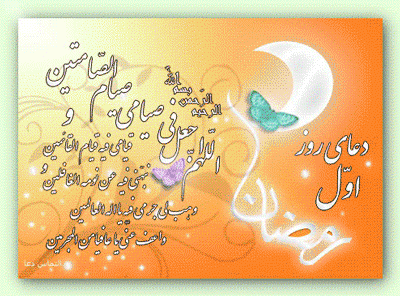 بسم الله الرحمن الرحیم
اللّهمّ اجعل فی صیامی صیام الصّائمین و
قیامی فیه قیام القائمین و
نبّهنی فیه عن نومة الغافلین
و هب لی جرمی فیه یا اله العالمین
و اعف عنّی یا عافیا من المجرمین
دعای روز
اوّل
رمضان
التماس دعا